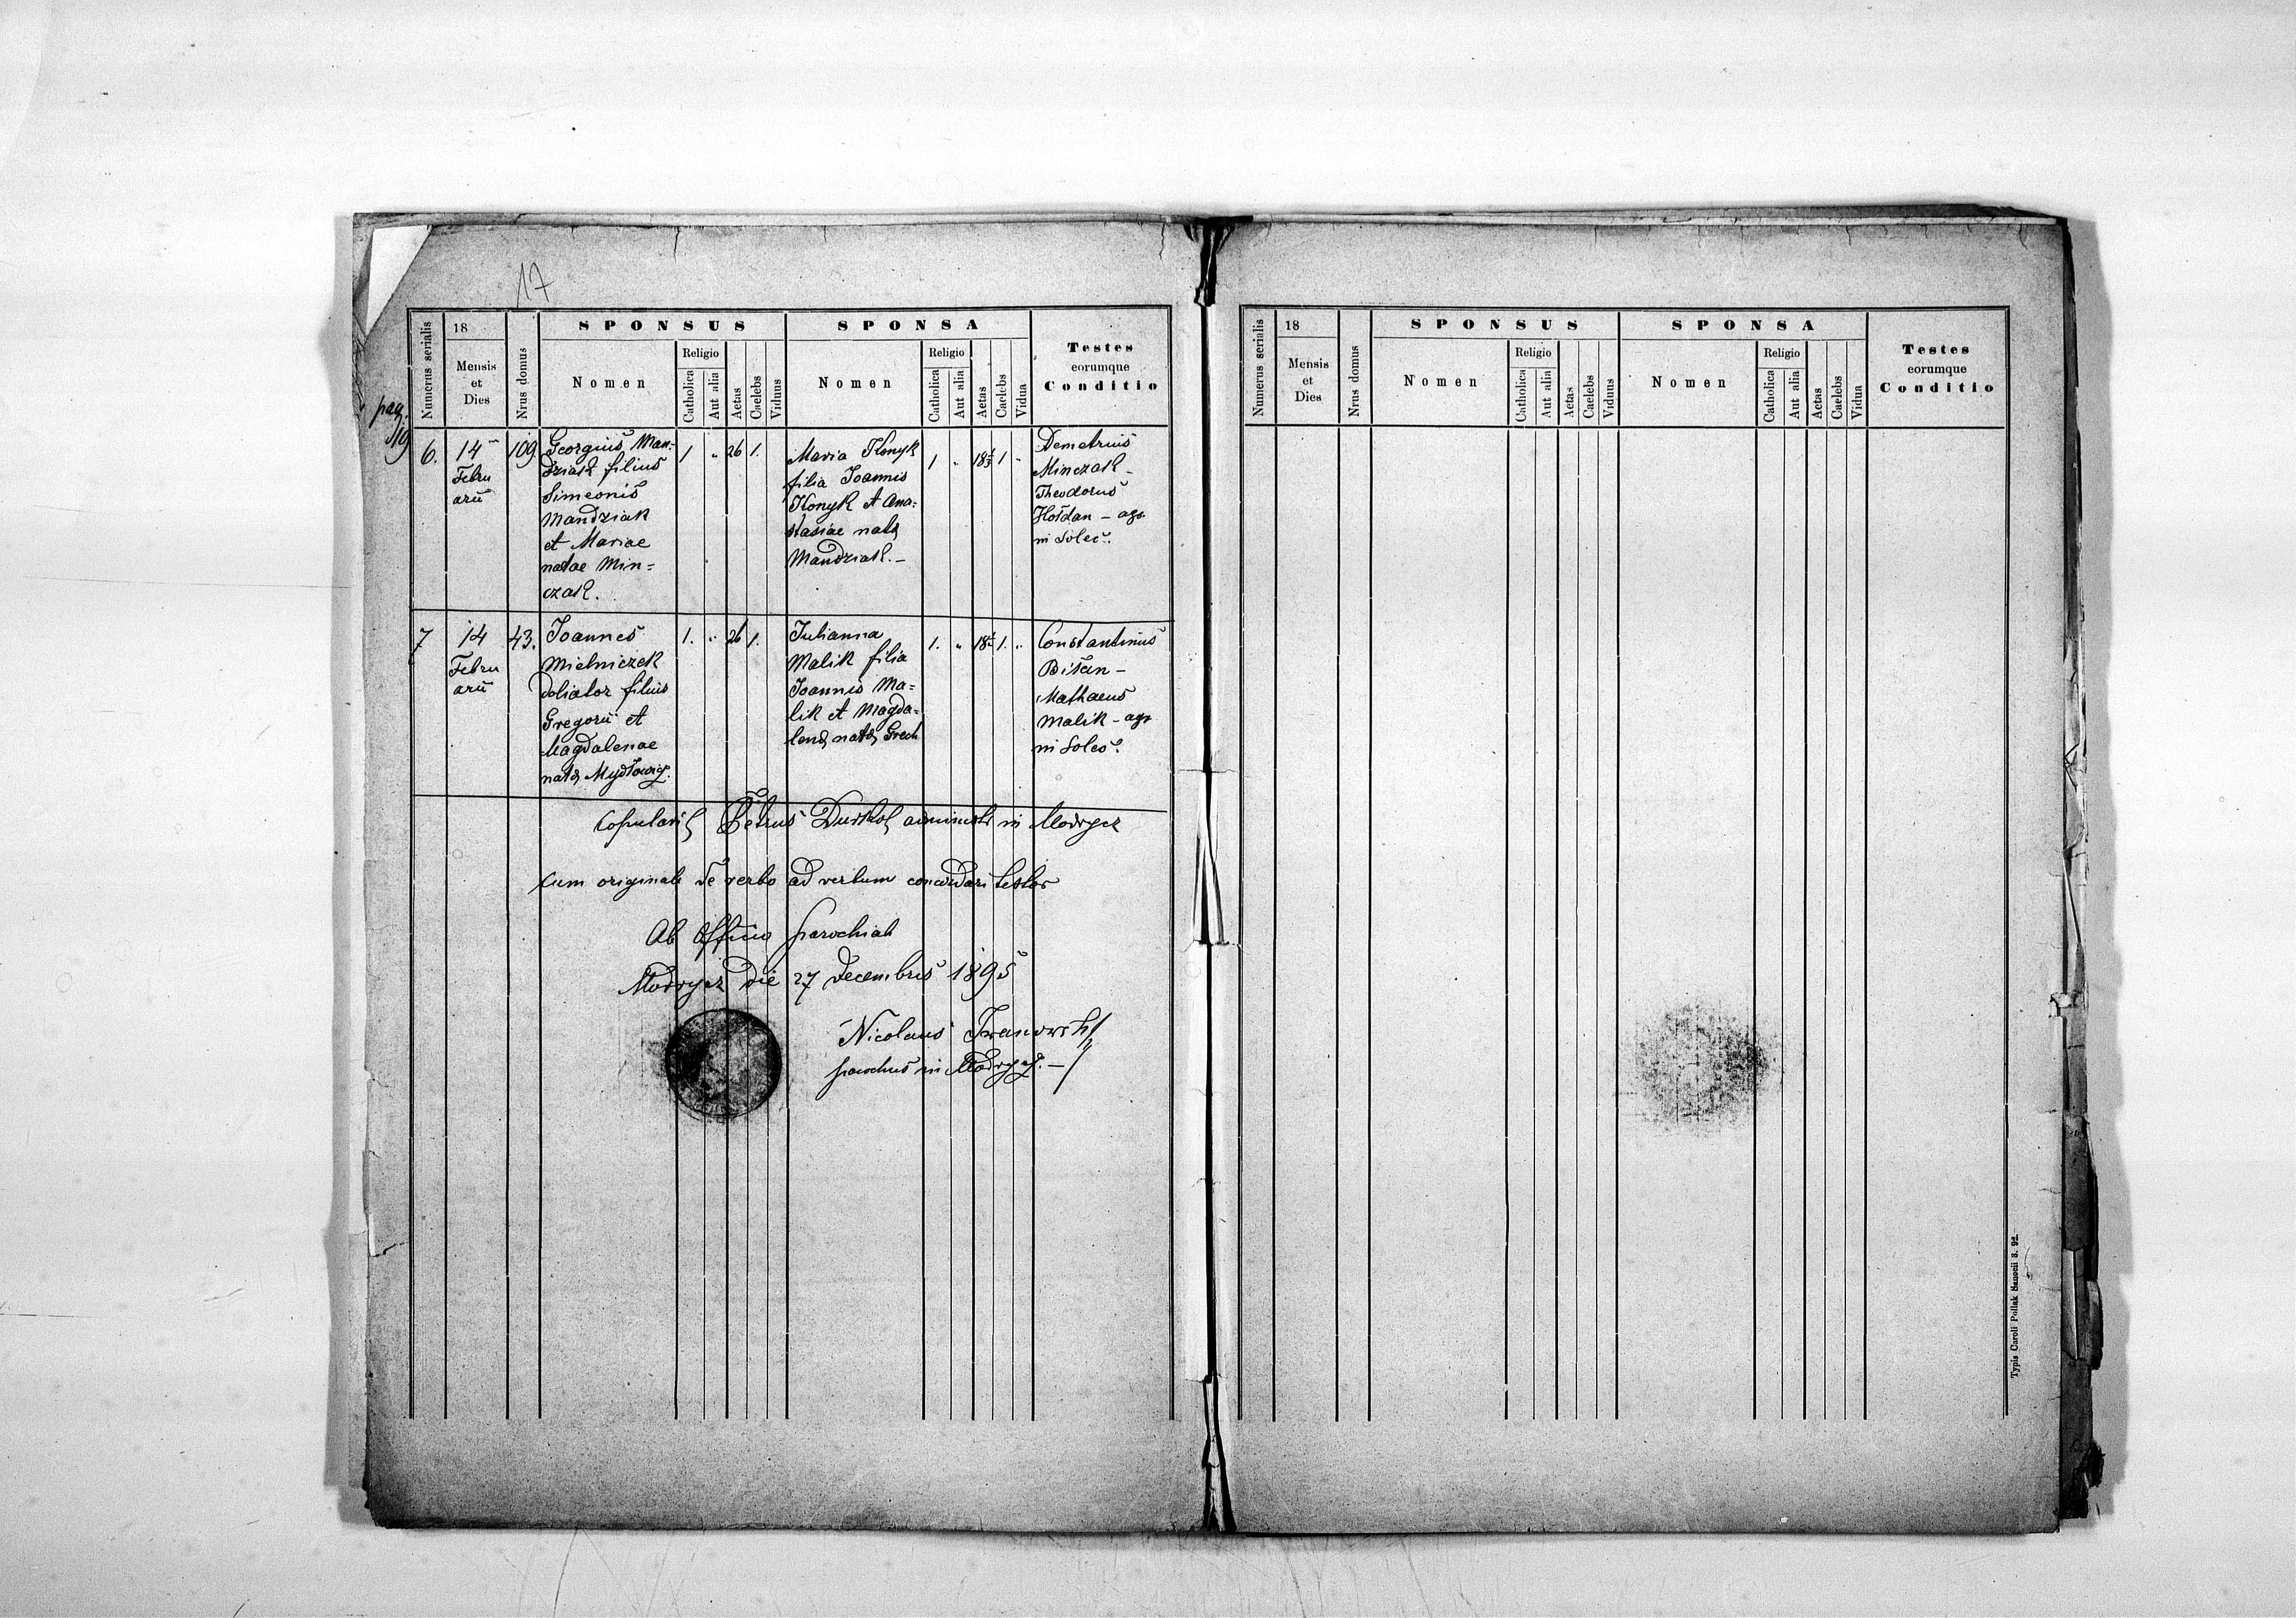 17
pag. 19
Numerus serialis
18
Mensis
et
Dies
Nrus domus
SPONSUS
Nomen
Religio
Catholica
Aut alia
Aetas
Caelebs
Viduus
SPONSA
Nomen
Religio
Catholica
Aut alia
Aetas
Caelebs
Vidua
Testes
eorumque
Conditio
6.
14
Febru
arii
109
Georgius Man-
dziak filius
Simeonis
Mandziak
et Mariae
natae Min=
czak.
1
"
26
1.
Maria Konyk
filia Joannis
Konyk et Ana=
stasiae natae
Mandziak.-
1
"
18
1
Demetrius
Minczak -
Theodorus
Hołdan - agr
in Solec.
7
14
Febru
arii
43.
Joannes
Mielniczek
doliator filius
Gregorii et
Magdalenae
natae
1.
"
26
1.
Julianna
Malik filia
Joannis Ma=
lik et Magda=
lenae natae Grech
1.
"
18
1.
"
Constantinus
Bilan -
Mathaeus
Malik - agr
in Solec.
Copulavit Petrus administr in Modrycz
Cum originali de verbo ad verbum concordari testor
Ab Officio parochiali
Modrycz die 27 Decembris 1895
Nicolaus Iwanowski
parochus in Modrycz. -
Numerus serialis
18
Mensis
et
Dies
Nrus domus
SPONSUS
Nomen
Religio
Catholica
Aut alia
Aetas
Caelebs
Viduus
SPONSA
Nomen
Religio
Catholica
Aut alia
Aetas
Caelebs
Vidua
Testes
eorumque
Conditio
Typis Caroli Pollak Sanocii 8. 92.